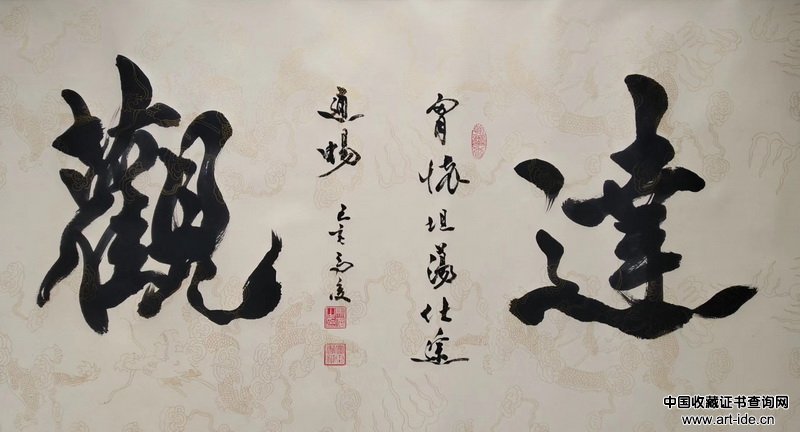 達
胷懷坦蕩仕途
通暢
己亥
觀
中国收藏证书查询网
www.art-ide.cn